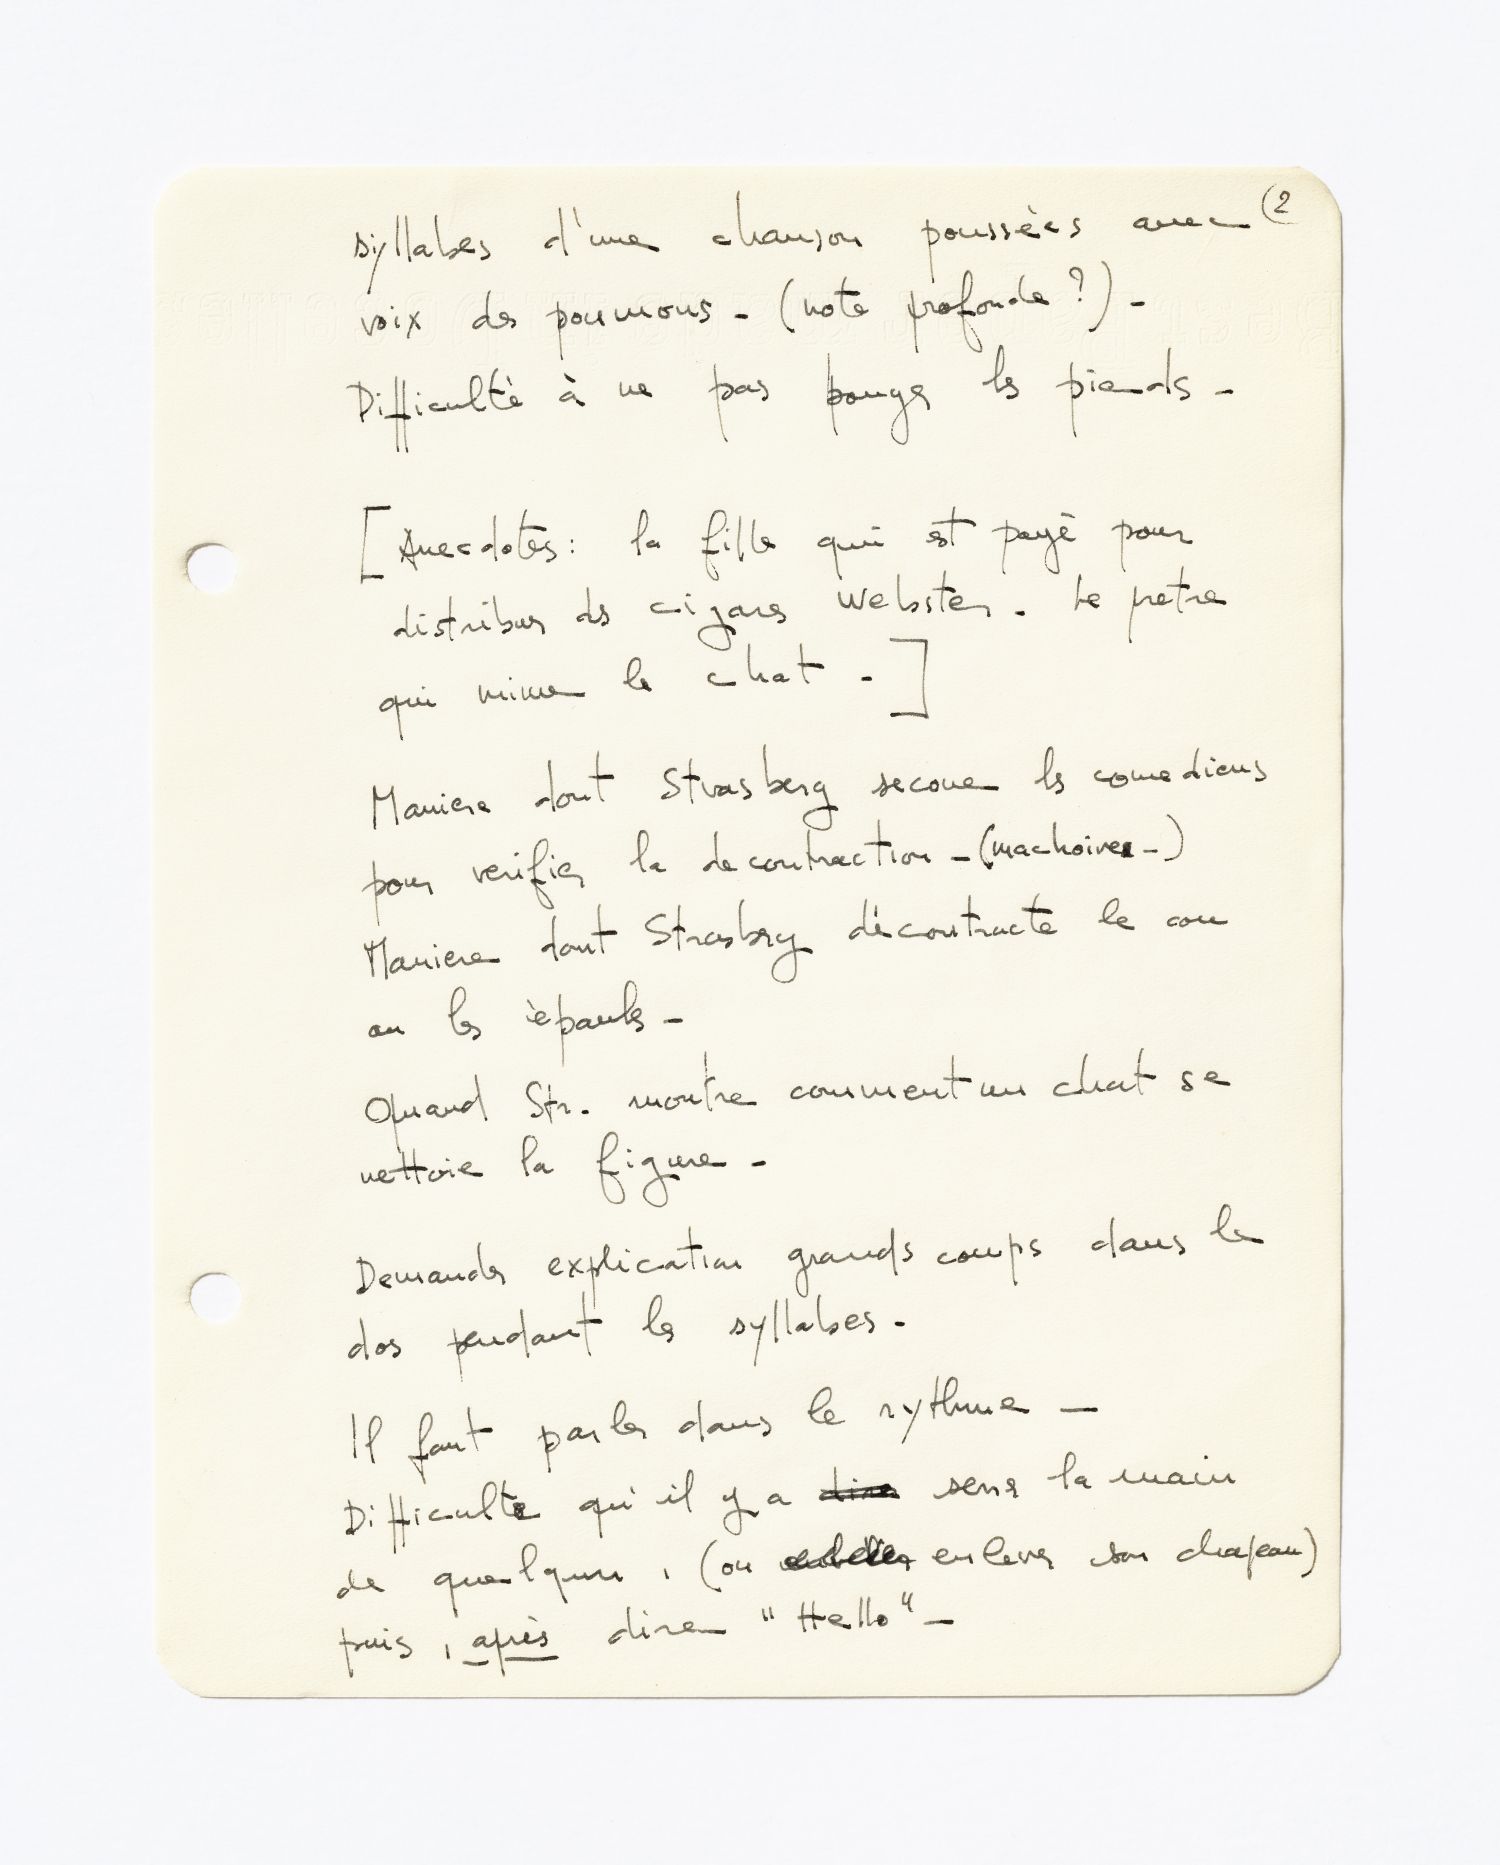 2
syllabes d'une chanson poussées avec
voix des poumons - (note profonde ?) -
Difficulté à ne pas bouger les pieds -
[Anecdotes : la fille qui est payé pour
distribuer des cigares Webster - Le pretre
qui mime le chat - ]
Maniere dont Strasberg secoue les comediens
pour verifier la decontraction - (machoires -)
Maniere dont Strasberg décontracte le cou
ou les épaules -
Quand Str. montre comment un chat se
nettoie la figure -
Demander explication grands coups dans le
dos pendant les syllabes -
Il faut parler dans le rythme -
Difficulté qu'il y a dire serrer la main
de quelqun, (ou enlever son chapeau)
puis, après dire "Hello" -